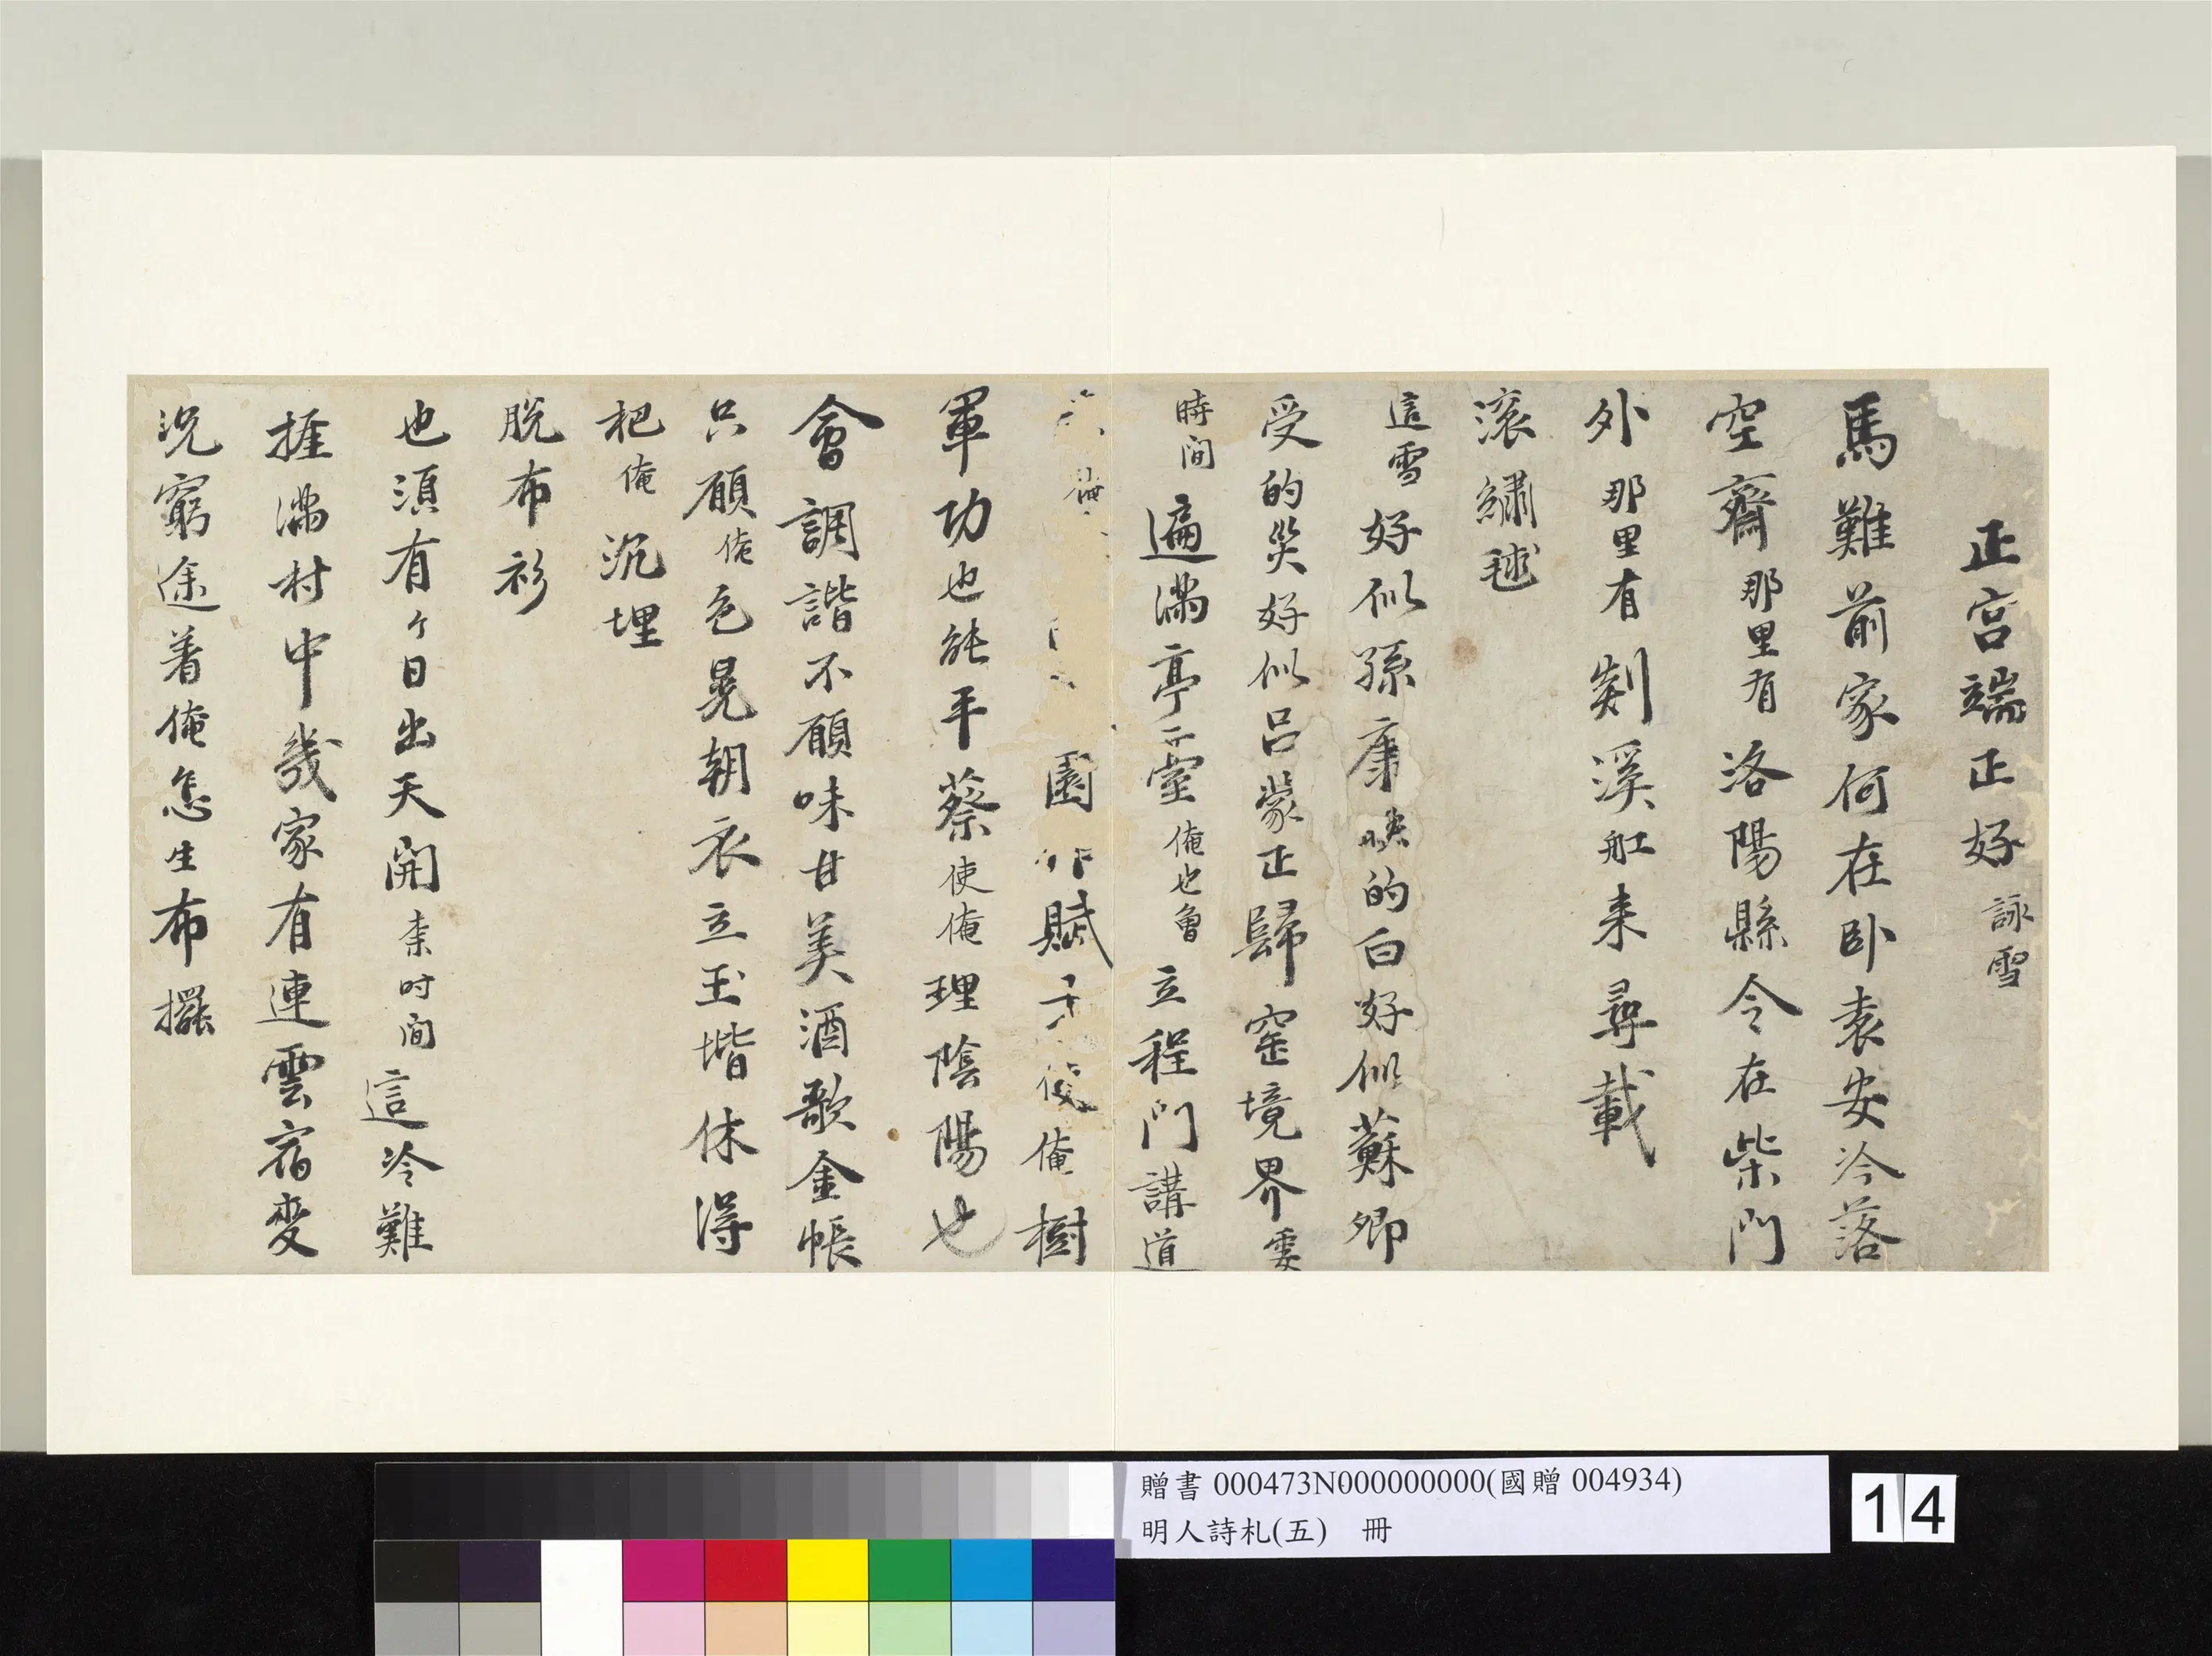 正宮端正好 詠雪
馬難前家何在卧袁安冷落
空齋那里有洛陽縣令在柴門
外那里有剡溪舡来尋載
滚繡毬
這雪好似孫康映的白好似蘇卿
受的災好似吕蒙正歸窑境界霎
時间遍满亭臺俺也曾立程門講道
俺園作賦俺樹
軍功也能平蔡使俺理陰陽也
會調諧不願味甘美酒歌金帳
只願俺色晃朝衣立玉堦休得
把俺沉埋
脱布衫
也須有个日出天開柰时间這冷難
捱满村中幾家有連雲宿麥
况窮途着俺怎生布擺
贈書 000473N000000000(國贈 004934)
明人詩札(五) 冊
14